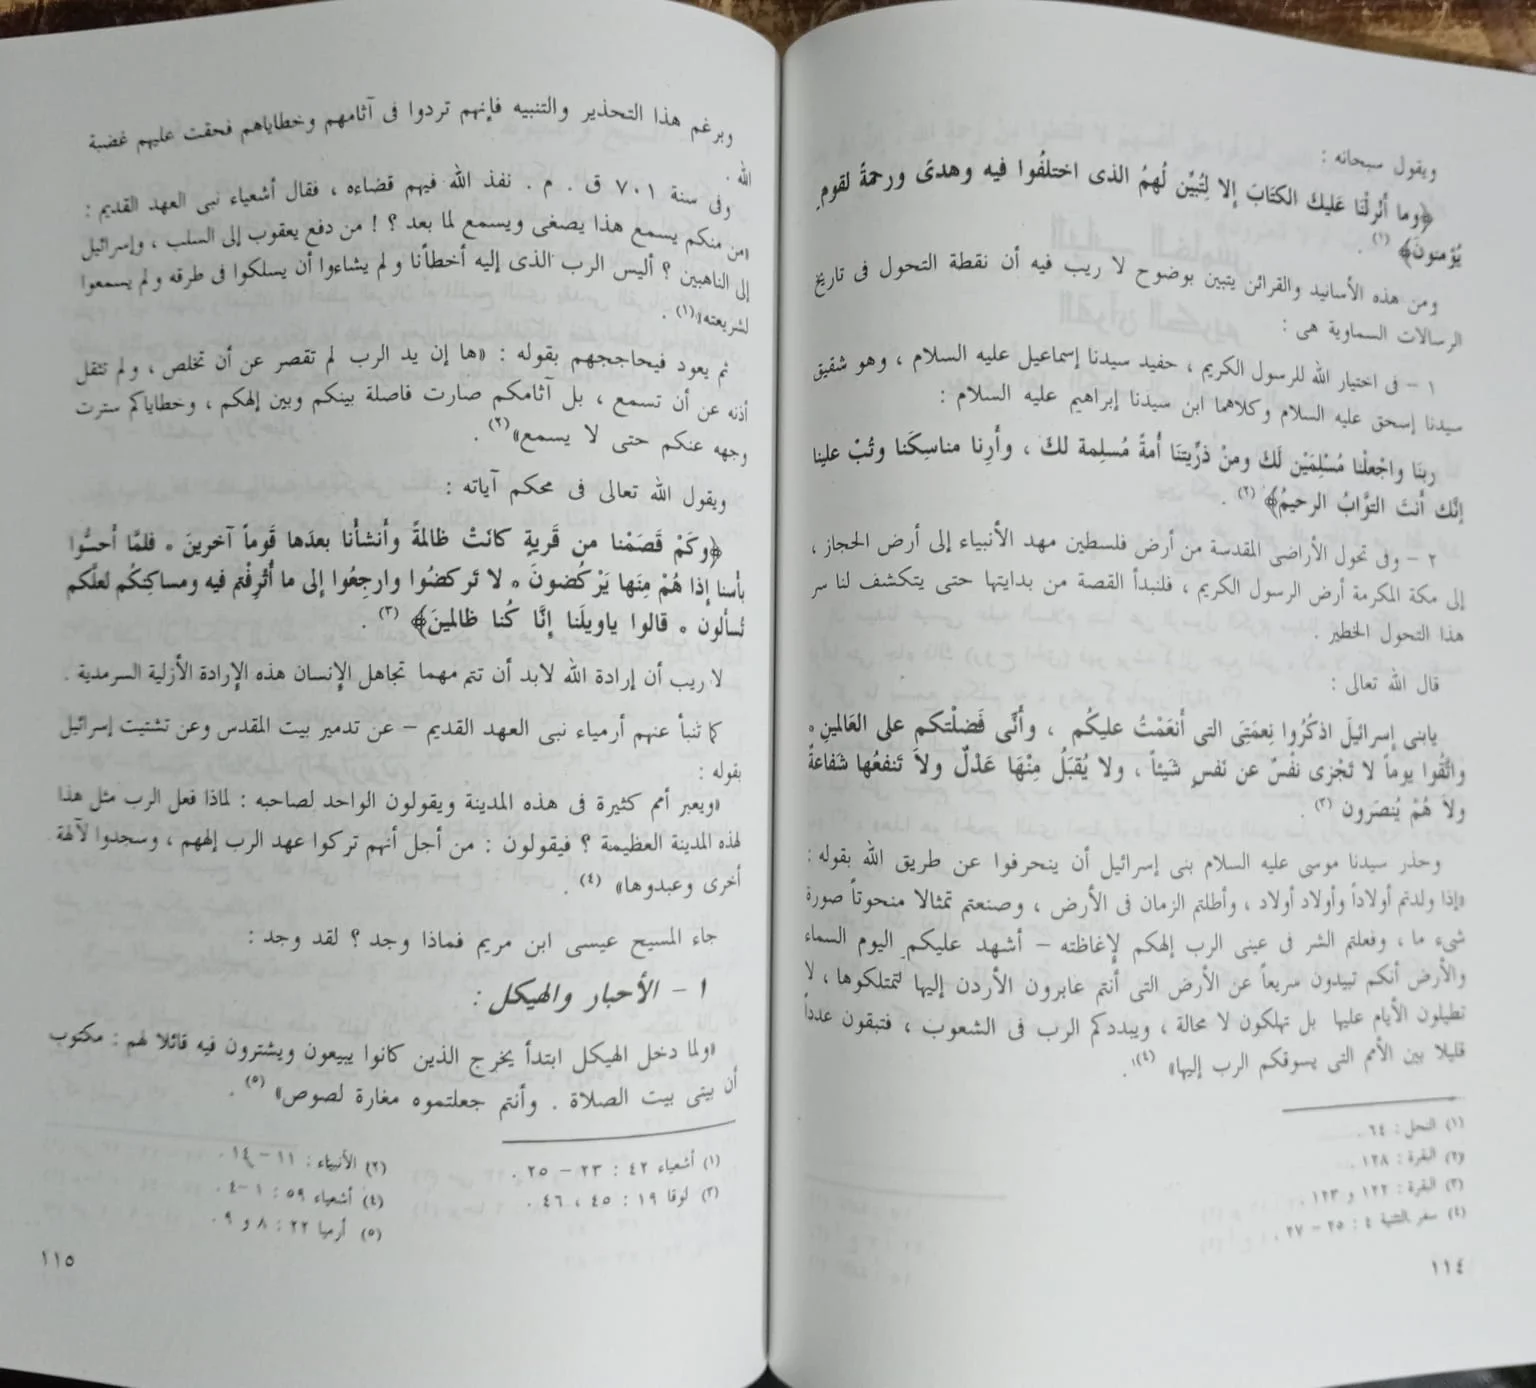 ويقول سبحانه :
﴿وما أنْزلْنَا عَليكَ الكتَابَ إلا لِتُبيِّن لَهمُ الذى اختلفُوا فيه وهدىً ورحمةً لقومٍ
يُؤمنونَ﴾ (١) .
ومن هذه الأسانيد والقرائن يتبين بوضوح لا ريب فيه أن نقطة التحول فى تاريخ
الرسالات السماوية هى :
١ - فى اختيار الله للرسول الكريم ، حفيد سيدنا إسماعيل عليه السلام ، وهو شقيق
سيدنا إسحق عليه السلام وكلاهما ابن سيدنا إبراهيم عليه السلام :
ربنَا واجْعلْنا مُسْلِمَيْن لَكَ ومنْ ذرِّيتنَا أمةً مُسلِمة لكَ ، وأَرِنا مناسِكَنا وتُبْ علينا
إنَّك أنتَ التوَّابُ الرحيمُ﴾ (٢) .
٢ - وفى تحول الأراضى المقدسة من أرض فلسطين مهد الأنبياء إلى أرض الحجاز ،
إلى مكة المكرمة أرض الرسول الكريم ، فلنبدأ القصة من بدايتها حتى يتكشف لنا سر
هذا التحول الخطير .
قال الله تعالى :
يابنى إسرائيلَ اذكُرُوا نِعمَتِىَ التى أَنعَمْتُ عليكُم ، وأَنِّى فَضلْتكم على العَالمينِ ٭
واتَّقُوا يوماً لا تَجْزى نفْسٌ عن نَفسٍ شَيئاً ، ولا يُقبَلُ مِنْهَا عَدْلٌ ولاَ تَنفعُها شَفاعةٌ
ولاَ هُمْ يُنصَرون (٣) .
وحذر سيدنا موسى عليه السلام بنى إسرائيل أن ينحرفوا عن طريق الله بقوله :
«إذا ولدتم أولاداً وأولاد أولاد ، وأطلتم الزمان فى الأرض ، وصنعتم تمثالا منحوتاً صورة
شىء ما ، وفعلتم الشر فى عينى الرب إلهكم لإغاظته - أشهد عليكم اليوم السماء
والأرض أنكم تبيدون سريعاً عن الأرض التى أنتم عابرون الأردن إليها لتمتلكوها ، لا
تطيلون الأيام عليها بل تهلكون لا محالة ، ويبددكم الرب فى الشعوب ، فتبقون عدداً
قليلا بين الأمم التى يسوقكم الرب إليها» (٤) .
(١) النحل : ٦٤ .
(٢) البقرة : ١٢٨ .
(٣) البقرة : ١٢٢ و ١٢٣ .
(٤) سفر التثنية ٤ : ٢٥ - ٢٧ .
١١٤
وبرغم هذا التحذير والتنبيه فإنهم تردوا فى آثامهم وخطاياهم فحقت عليهم غضبة
الله .
وفى سنة ٧٠١ ق . م . نفذ الله فيهم قضاءه ، فقال أشعياء نبى العهد القديم :
«من منكم يسمع هذا يصغى ويسمع لما بعد ؟ ! من دفع يعقوب إلى السلب ، وإسرائيل
إلى الناهبين ؟ أليس الرب الذى إليه أخطأنا ولم يشاءوا أن يسلكوا فى طرقه ولم يسمعوا
لشريعته»(١) .
ثم يعود فيحاججهم بقوله : «ها إن يد الرب لم تقصر عن أن تخلص ، ولم تثقل
أذنه عن أن تسمع ، بل آثامكم صارت فاصلة بينكم وبين إلهكم ، وخطاياكم سترت
وجهه عنكم حتى لا يسمع»(٢) .
ويقول الله تعالى فى محكم آياته :
﴿وكَمْ قَصَمْنا من قَريةٍ كانَتْ ظالمةً وأنشأْنا بعدَها قَوماً آخرينَ ٭ فلمَّا أحسُّوا
بأْسنا إذَا هُمْ مِنَها يَرْكُضونَ ٭ لا تَركضُوا وارجعُوا إلى ما أُترِفْتم فيه ومساكنِكُم لعلَّكم
تُسألون ٭ قالوا ياويلَنا إنَّا كُنا ظالمينَ﴾ (٣) .
لا ريب أن إرادة الله لابد أن تتم مهما تجاهل الإنسان هذه الإرادة الأزلية السرمدية .
كما تنبأ عنهم أرمياء نبى العهد القديم - عن تدمير بيت المقدس وعن تشتيت إسرائيل
بقوله :
«ويعبر أمم كثيرة فى هذه المدينة ويقولون الواحد لصاحبه : لماذا فعل الرب مثل هذا
لهذه المدينة العظيمة ؟ فيقولون : من أجل أنهم تركوا عهد الرب إلههم ، وسجدوا لآلهة
أخرى وعبدوها» (٤) .
جاء المسيح عيسى ابن مريم فماذا وجد ؟ لقد وجد :
١ - الأحبار والهيكل :
«ولما دخل الهيكل ابتدأ يخرج الذين كانوا يبيعون ويشترون فيه قائلا لهم : مكتوب
أن بيتى بيت الصلاة . وأنتم جعلتموه مغارة لصوص» (٥) .
(١) أشعياء ٤٢ : ٢٣ - ٢٥ .
(٢) الأنبياء : ١١ - ١٤ .
(٣) لوقا ١٩ : ٤٥ ، ٤٦ .
(٤) أشعياء ٥٩ : ١ - ٤ .
(٥) أرميا ٢٢ : ٨ و ٩ .
١١٥